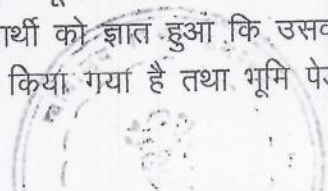 र्थी को ज्ञात हुआ कि उसव
किया गया है तथा भूमि पे